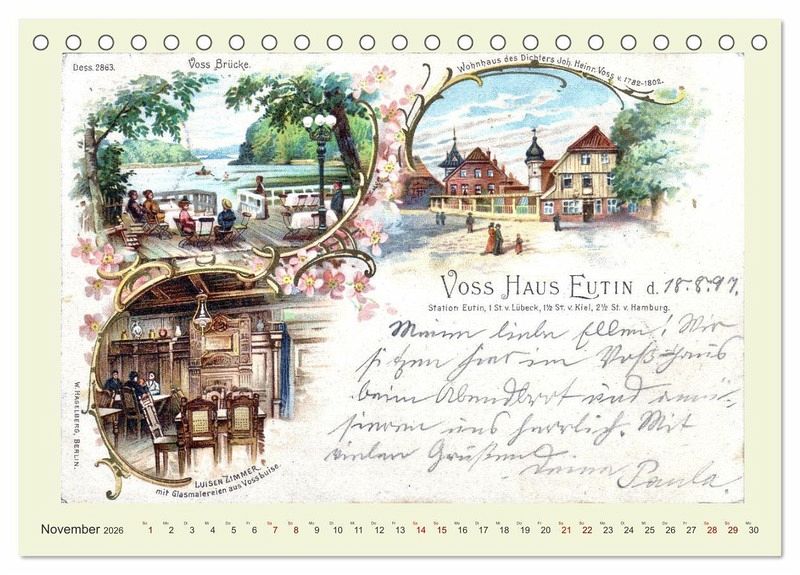 Dess. 2863.
Voss Brücke.
Wohnhaus des Dichters Joh. Heinr. Voss v. 1782-1802.
VOSS HAUS EUTIN d. 18.8.97.
Station Eutin, 1 St. v. Lübeck, 1½ St. v. Kiel, 2½ St. v. Hamburg.
Meine liebe Ellen! Wir
sitzen hier im Voß-Haus
beim Abendbrot und amü-
sieren uns herrlich. Mit
vielen Grüßen
Deine Paula.
W. HAGELBERG, BERLIN.
LUISEN ZIMMER
mit Glasmalereien aus Vossbuise.
November 2026
So Mo Di Mi Do Fr Sa So Mo Di Mi Do Fr Sa So Mo Di Mi Do Fr Sa So Mo Di Mi Do Fr Sa So Mo
1 2 3 4 5 6 7 8 9 10 11 12 13 14 15 16 17 18 19 20 21 22 23 24 25 26 27 28 29 30